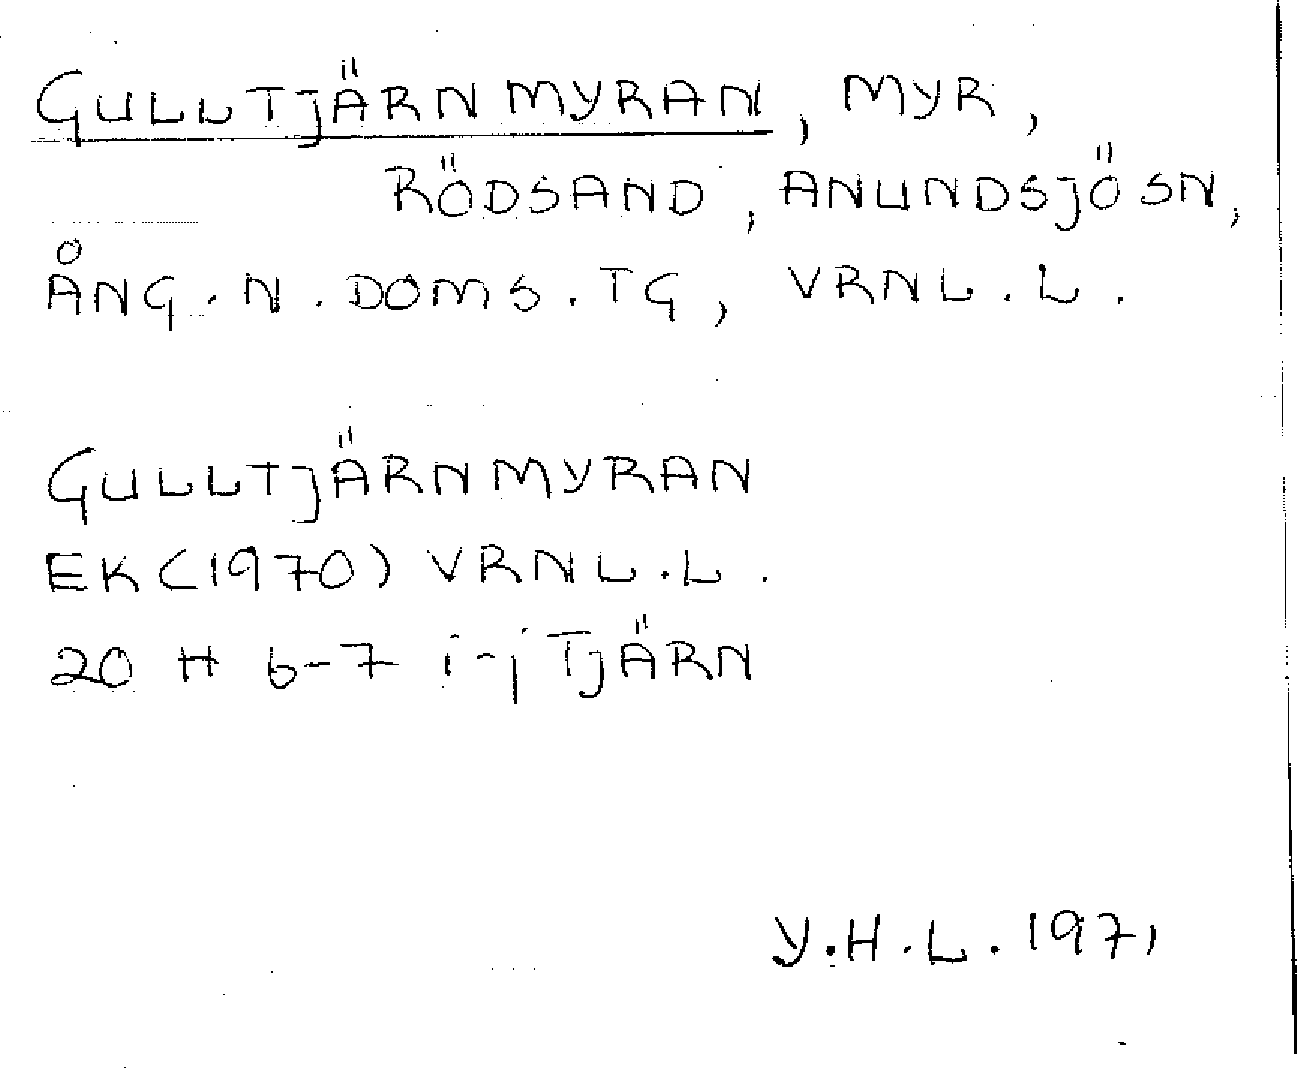 GULLTJÄRNMYRAN, MYR,
RÖDSAND, ANUNDSJÖ SN,
ÅNG. N. DOMS. TG, VRNL. L.
GULLTJÄRNMYRAN
EK (1970) VRNL. L.
20 H 6-7 i-j TJÄRN
Y.H.L. 1971